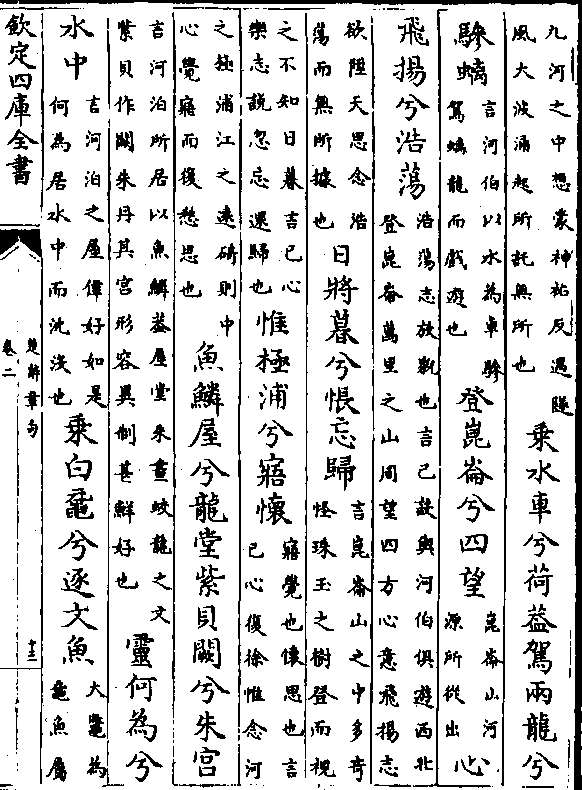 九河之中想蒙神祐反遇隧
風大波湧起所託無所也
乘水車兮荷葢駕兩龍兮
驂螭
言河伯以水為車驂
駕螭龍而戲遊也
登崑崙兮四望
崑崙山河
源所從出
心
飛揚兮浩蕩
浩蕩志放貌也言己設與河伯俱遊西北
登崑崙萬里之山周望四方心意飛揚志
欲陞天思念浩
蕩而無所據也
日將暮兮悵忘歸
言崑崙山之中多奇
怪珠玉之樹登而視
之不知日暮言己心
樂志說忽忘還歸也
惟極浦兮寤懷
寤覺也懷思也言
己心復徐惟念河
之極浦江之遠碕則中
心覺寤而復愁思也
魚鱗屋兮龍堂紫貝闕兮朱宮
言河泊所居以魚鱗葢屋堂朱畫蛟龍之文
紫貝作闕朱丹其宮形容異制甚鮮好也
靈何為兮
水中
言河泊之屋偉好如是
何為居水中而沈沒也
乘白黿兮逐文魚
大鼈為
黿魚屬
欽定四庫全書
楚辭章句
卷二
十三